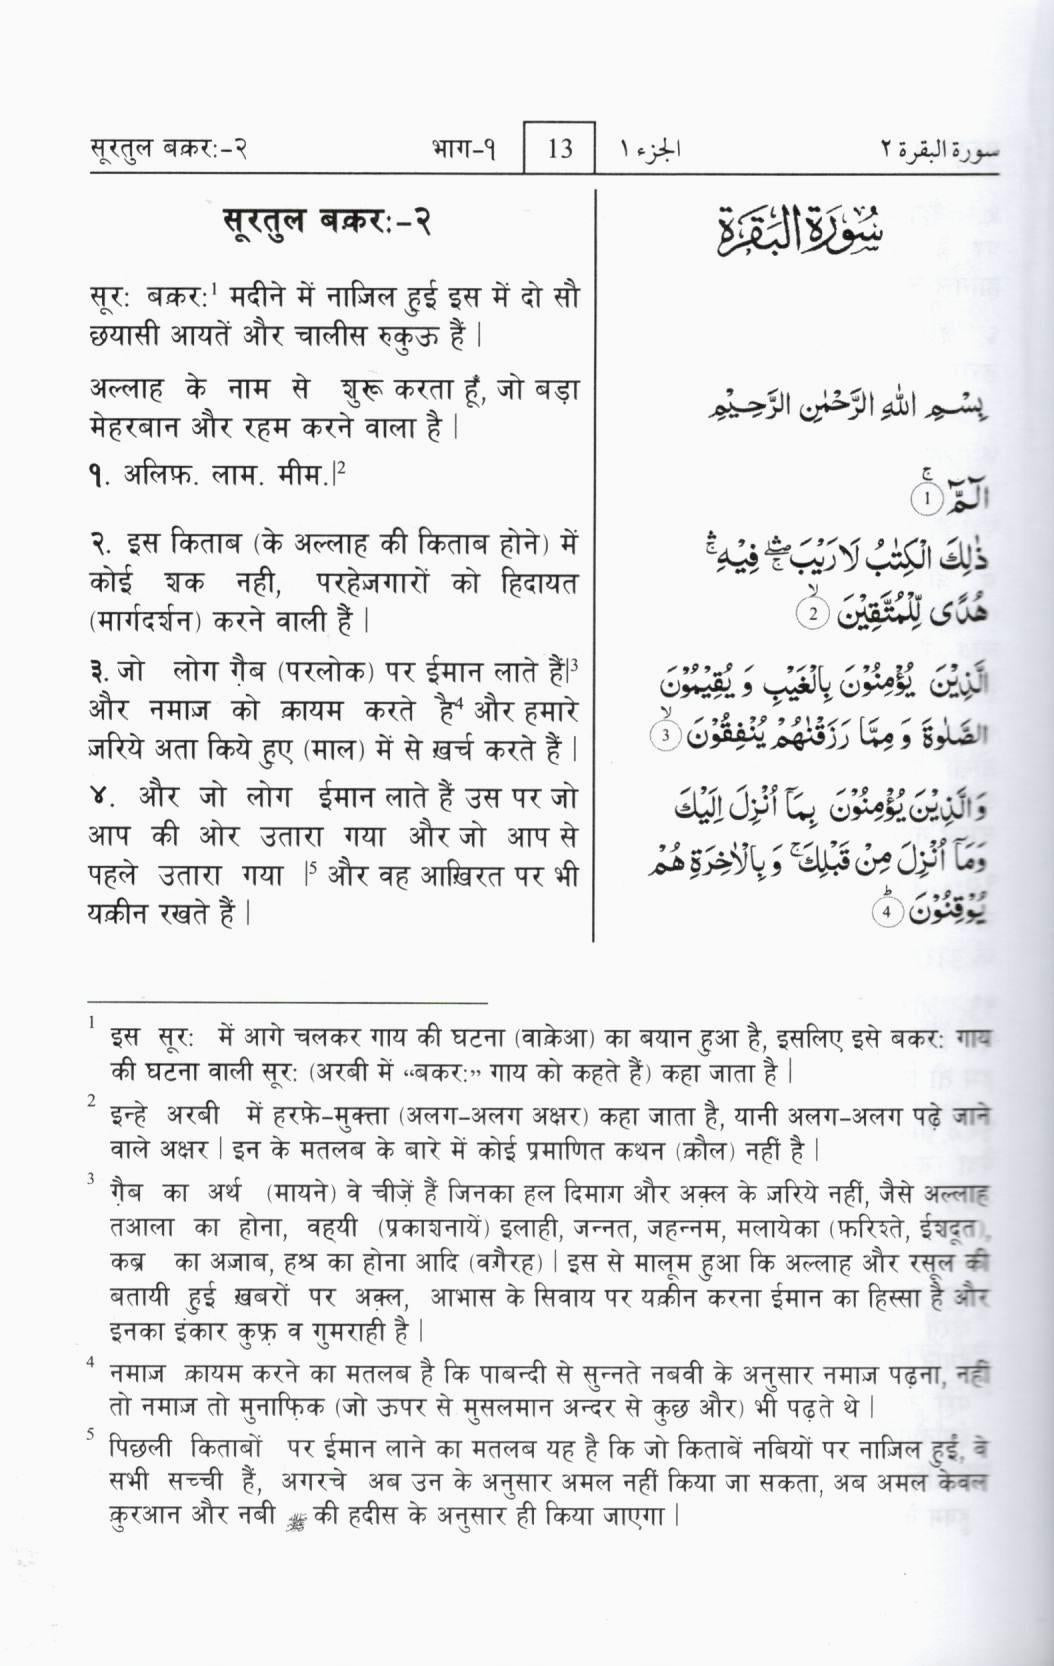 सूरतुल बक़रः-२ भाग-१ 13 الجزء ١ سورة البقرة ٢
सूरतुल बक़रः-२
सूरः बक़रः¹ मदीने में नाज़िल हुई इस में दो सौ
छयासी आयतें और चालीस रुकुऊ हैं |
अल्लाह के नाम से शुरू करता हूँ, जो बड़ा
मेहरबान और रहम करने वाला है |
१. अलिफ़. लाम. मीम.|²
२. इस किताब (के अल्लाह की किताब होने) में
कोई शक नही, परहेज़गारों को हिदायत
(मार्गदर्शन) करने वाली हैं |
३. जो लोग ग़ैब (परलोक) पर ईमान लाते हैं|³
और नमाज़ को क़ायम करते है⁴ और हमारे
ज़रिये अता किये हुए (माल) में से ख़र्च करते हैं |
४. और जो लोग ईमान लाते हैं उस पर जो
आप की ओर उतारा गया और जो आप से
पहले उतारा गया |⁵ और वह आख़िरत पर भी
यक़ीन रखते हैं |
سُوْرَةُ الْبَقَرَةِ
بِسْمِ اللهِ الرَّحْمٰنِ الرَّحِيْمِ
الٓمّٓ ۚ 1
ذٰلِكَ الْكِتٰبُ لَا رَيْبَ ۛ فِيْهِ ۛ
هُدًى لِّلْمُتَّقِيْنَ ۙ 2
الَّذِيْنَ يُؤْمِنُوْنَ بِالْغَيْبِ وَ يُقِيْمُوْنَ
الصَّلٰوةَ وَ مِمَّا رَزَقْنٰهُمْ يُنْفِقُوْنَ ۙ 3
وَالَّذِيْنَ يُؤْمِنُوْنَ بِمَآ اُنْزِلَ اِلَيْكَ
وَمَآ اُنْزِلَ مِنْ قَبْلِكَ ۚ وَ بِالْاٰخِرَةِ هُمْ
يُوْقِنُوْنَ ؕ 4
¹ इस सूरः में आगे चलकर गाय की घटना (वाक़ेआ) का बयान हुआ है, इसलिए इसे बकरः गाय
की घटना वाली सूरः (अरबी में “बकरः” गाय को कहते हैं) कहा जाता है |
² इन्हे अरबी में हरफ़े-मुक्त्ता (अलग-अलग अक्षर) कहा जाता है, यानी अलग-अलग पढ़े जाने
वाले अक्षर | इन के मतलब के बारे में कोई प्रमाणित कथन (क़ौल) नहीं है |
³ ग़ैब का अर्थ (मायने) वे चीज़ें हैं जिनका हल दिमाग़ और अक़्ल के ज़रिये नहीं, जैसे अल्लाह
तआला का होना, वहयी (प्रकाशनायें) इलाही, जन्नत, जहन्नम, मलायेका (फ़रिश्ते, ईशदूत),
कब्र का अज़ाब, हश्र का होना आदि (वग़ैरह) | इस से मालूम हुआ कि अल्लाह और रसूल की
बतायी हुई ख़बरों पर अक़्ल, आभास के सिवाय पर यक़ीन करना ईमान का हिस्सा है और
इनका इंकार कुफ़्र व गुमराही है |
⁴ नमाज़ क़ायम करने का मतलब है कि पाबन्दी से सुन्नते नबवी के अनुसार नमाज़ पढ़ना, नहीं
तो नमाज़ तो मुनाफ़िक (जो ऊपर से मुसलमान अन्दर से कुछ और) भी पढ़ते थे |
⁵ पिछली किताबों पर ईमान लाने का मतलब यह है कि जो किताबें नबियों पर नाज़िल हुईं, वे
सभी सच्ची हैं, अगरचे अब उन के अनुसार अमल नहीं किया जा सकता, अब अमल केवल
क़ुरआन और नबी ﷺ की हदीस के अनुसार ही किया जाएगा |